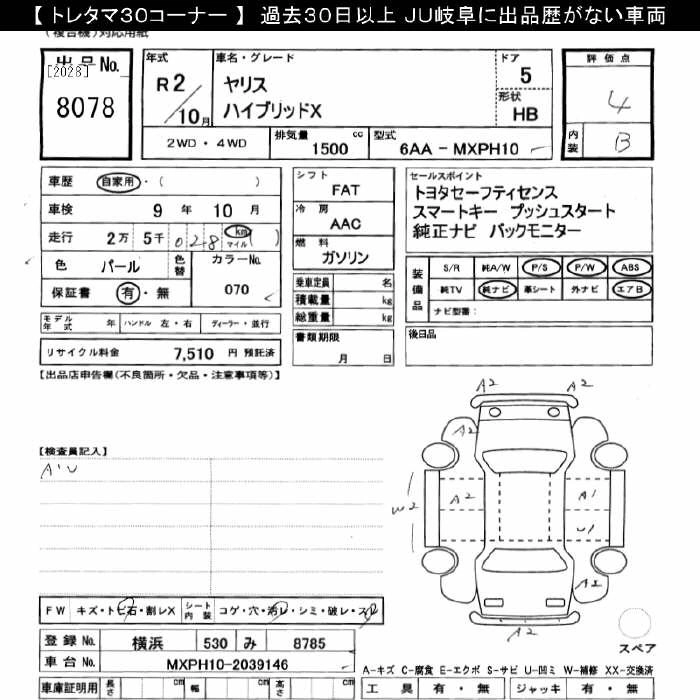 【 トレタマ30コーナー 】 過去30日以上 JU岐阜に出品歴がない車両
(複合機)対応用紙
出品No.
[2028]
8078
年式
R2/10月
車名・グレード
ヤリス
ハイブリッドX
ドア
5
形状
HB
2WD・4WD
排気量
1500 cc
型式
6AA-MXPH10
評価点
4
内装
B
車歴 自家用・( )
車検 9年 10月
走行 2万 5千 028 km マイル ( )
色 パール 色替 カラーNo.
保証書 有・無 070
シフト
FAT
冷房
AAC
燃料
ガソリン
乗車定員 名
積載量 kg
総重量 kg
セールスポイント
トヨタセーフティセンス
スマートキー プッシュスタート
純正ナビ バックモニター
装備品
S/R 純A/W P/S P/W ABS
純TV 純ナビ 革シート 外ナビ エアB
ナビ型番:
モデル年式 年 ハンドル 左・右 ディーラー・並行
リサイクル料金 7,510 円 預託済
書類期限
月 日
後日品
【出品店申告欄(不良箇所・欠品・注意事項等)】
【検査員記入】
A'U
A2 A2
A2
W2 A2 A1
U1
A2
A2
スペア
FW キズ・トビ石・割レX シート内装 コゲ・穴・汚レ・シミ・破レ・スレ
登録No. 横浜 530 み 8785
車台No. MXPH10-2039146
A-キズ C-腐食 E-エクボ S-サビ U-凹ミ W-補修 XX-交換済
車庫証明用 長さ cm 幅 cm 高さ cm
工具 有・無 ジャッキ 有・無